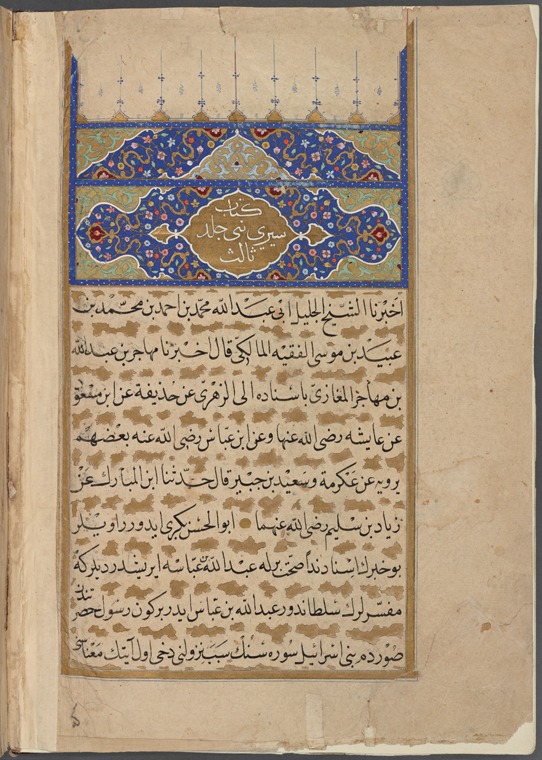 كتاب
سيري نبي جلد
ثالث
اخبرنا الشيخ الجليل ابى عبد الله محمد بن احمد بن محمد بن
عبيد بن موسى الفقيه المالكى قال اخبرنا مهاجر بن عبد الله
بن مهاجر المغازى باسناده الى الزهرى عن حذيفة عن ابن مسعود
عن عايشه رضى الله عنها وعن ابن عباس رضى الله عنه بعضهم
يرويه عن عكرمة وسعيد بن جبير قال حدثنا ابن المبارك عن
زياد بن سليم رضى الله عنهما ابو الحسن بكرى ايدور راويلر
بو خبرك اسنادندا صحت برله عبد الله بن عباسه ايرشدرديلر كه
مفسرلرك سلطاندور عبد الله بن عباس ايدر بركون رسول حضرتندن
صوردم بنى اسرائيل سوره سنك سبب نزولنى دخى اول آيتك معناسى